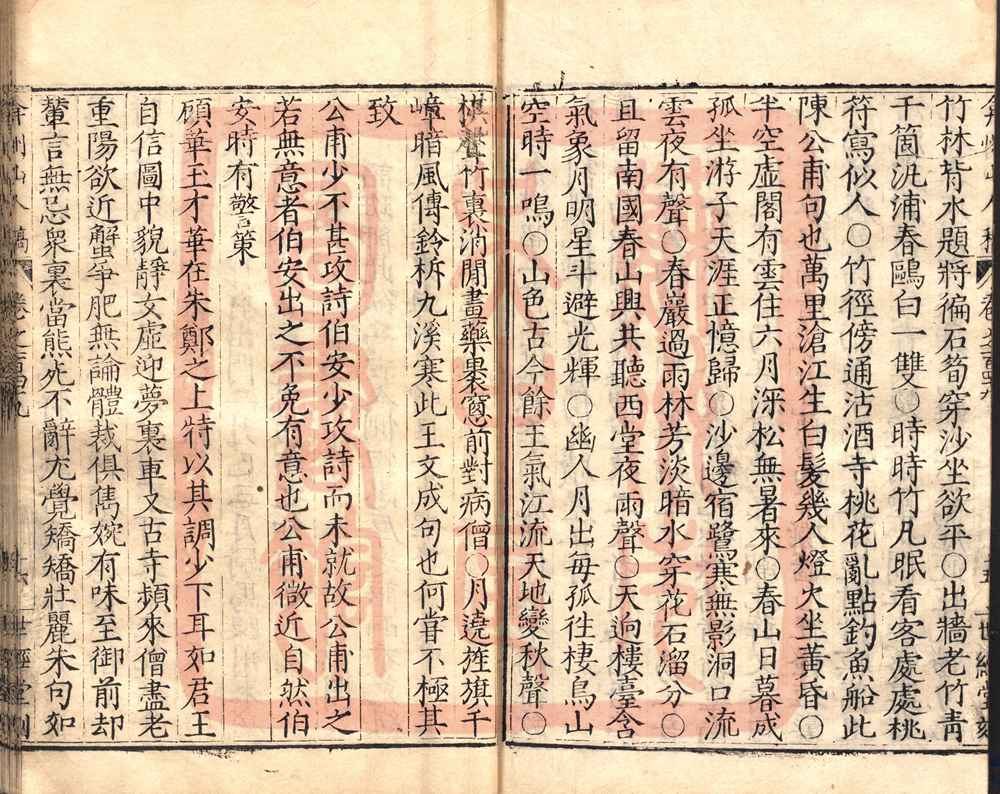 竹林背水題將徧石筍穿沙坐欲平○出牆老竹靑
千箇汎浦春鷗白一雙○時時竹几眠看客處處桃
符寫似人○竹徑傍通沽酒寺桃花亂點釣魚船此
陳公甫句也萬里滄江生白髮幾人燈火坐黃昏○
半空虛閣有雲住六月深松無暑來○春山日暮成
孤坐游子天涯正憶歸○沙邊宿鷺寒無影洞口流
雲夜有聲○春巖過雨林芳淡暗水穿花石溜分○
且留南國春山興共聽西堂夜雨聲○天迥樓臺含
氣象月明星斗避光輝○幽人月出每孤徃棲鳥山
空時一鳴○山色古今餘王氣江流天地變秋聲○
棋聲竹裏消閒畫藥裹窓前對病僧○月遶旌旗千
嶂暗風傳鈴柝九溪寒此王文成句也何嘗不極其
致
公甫少不甚攻詩伯安少攻詩而未就故公甫出之
若無意者伯安出之不免有意也公甫微近自然伯
安時有警策
顧華玉才華在朱鄭之上特以其調少下耳如君王
自信圖中貌靜女虛迎夢裏車又古寺頻來僧盡老
重陽欲近蟹爭肥無論體裁俱雋婉有味至御前却
輦言無忌衆裏當熊死不辭尤覺矯矯壯麗朱句如
弇州山人稿 卷之一百四十九 世經堂刻